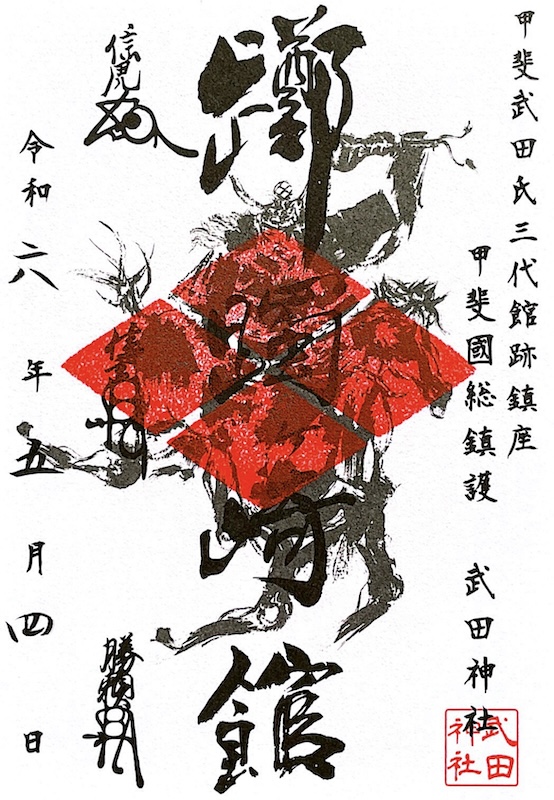 甲斐武田氏三代館跡鎮座
甲斐國総鎮護 武田神社
武田
神社
躑躅崎館
信虎
信玄
勝頼
令和六年五月四日